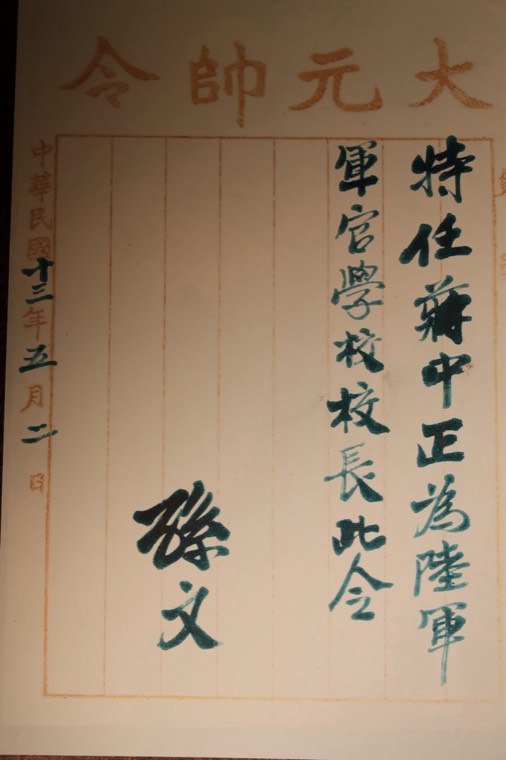 大元帥令
特任蔣中正為陸軍
軍官學校校長此令
孫文
中華民國十三年五月二日